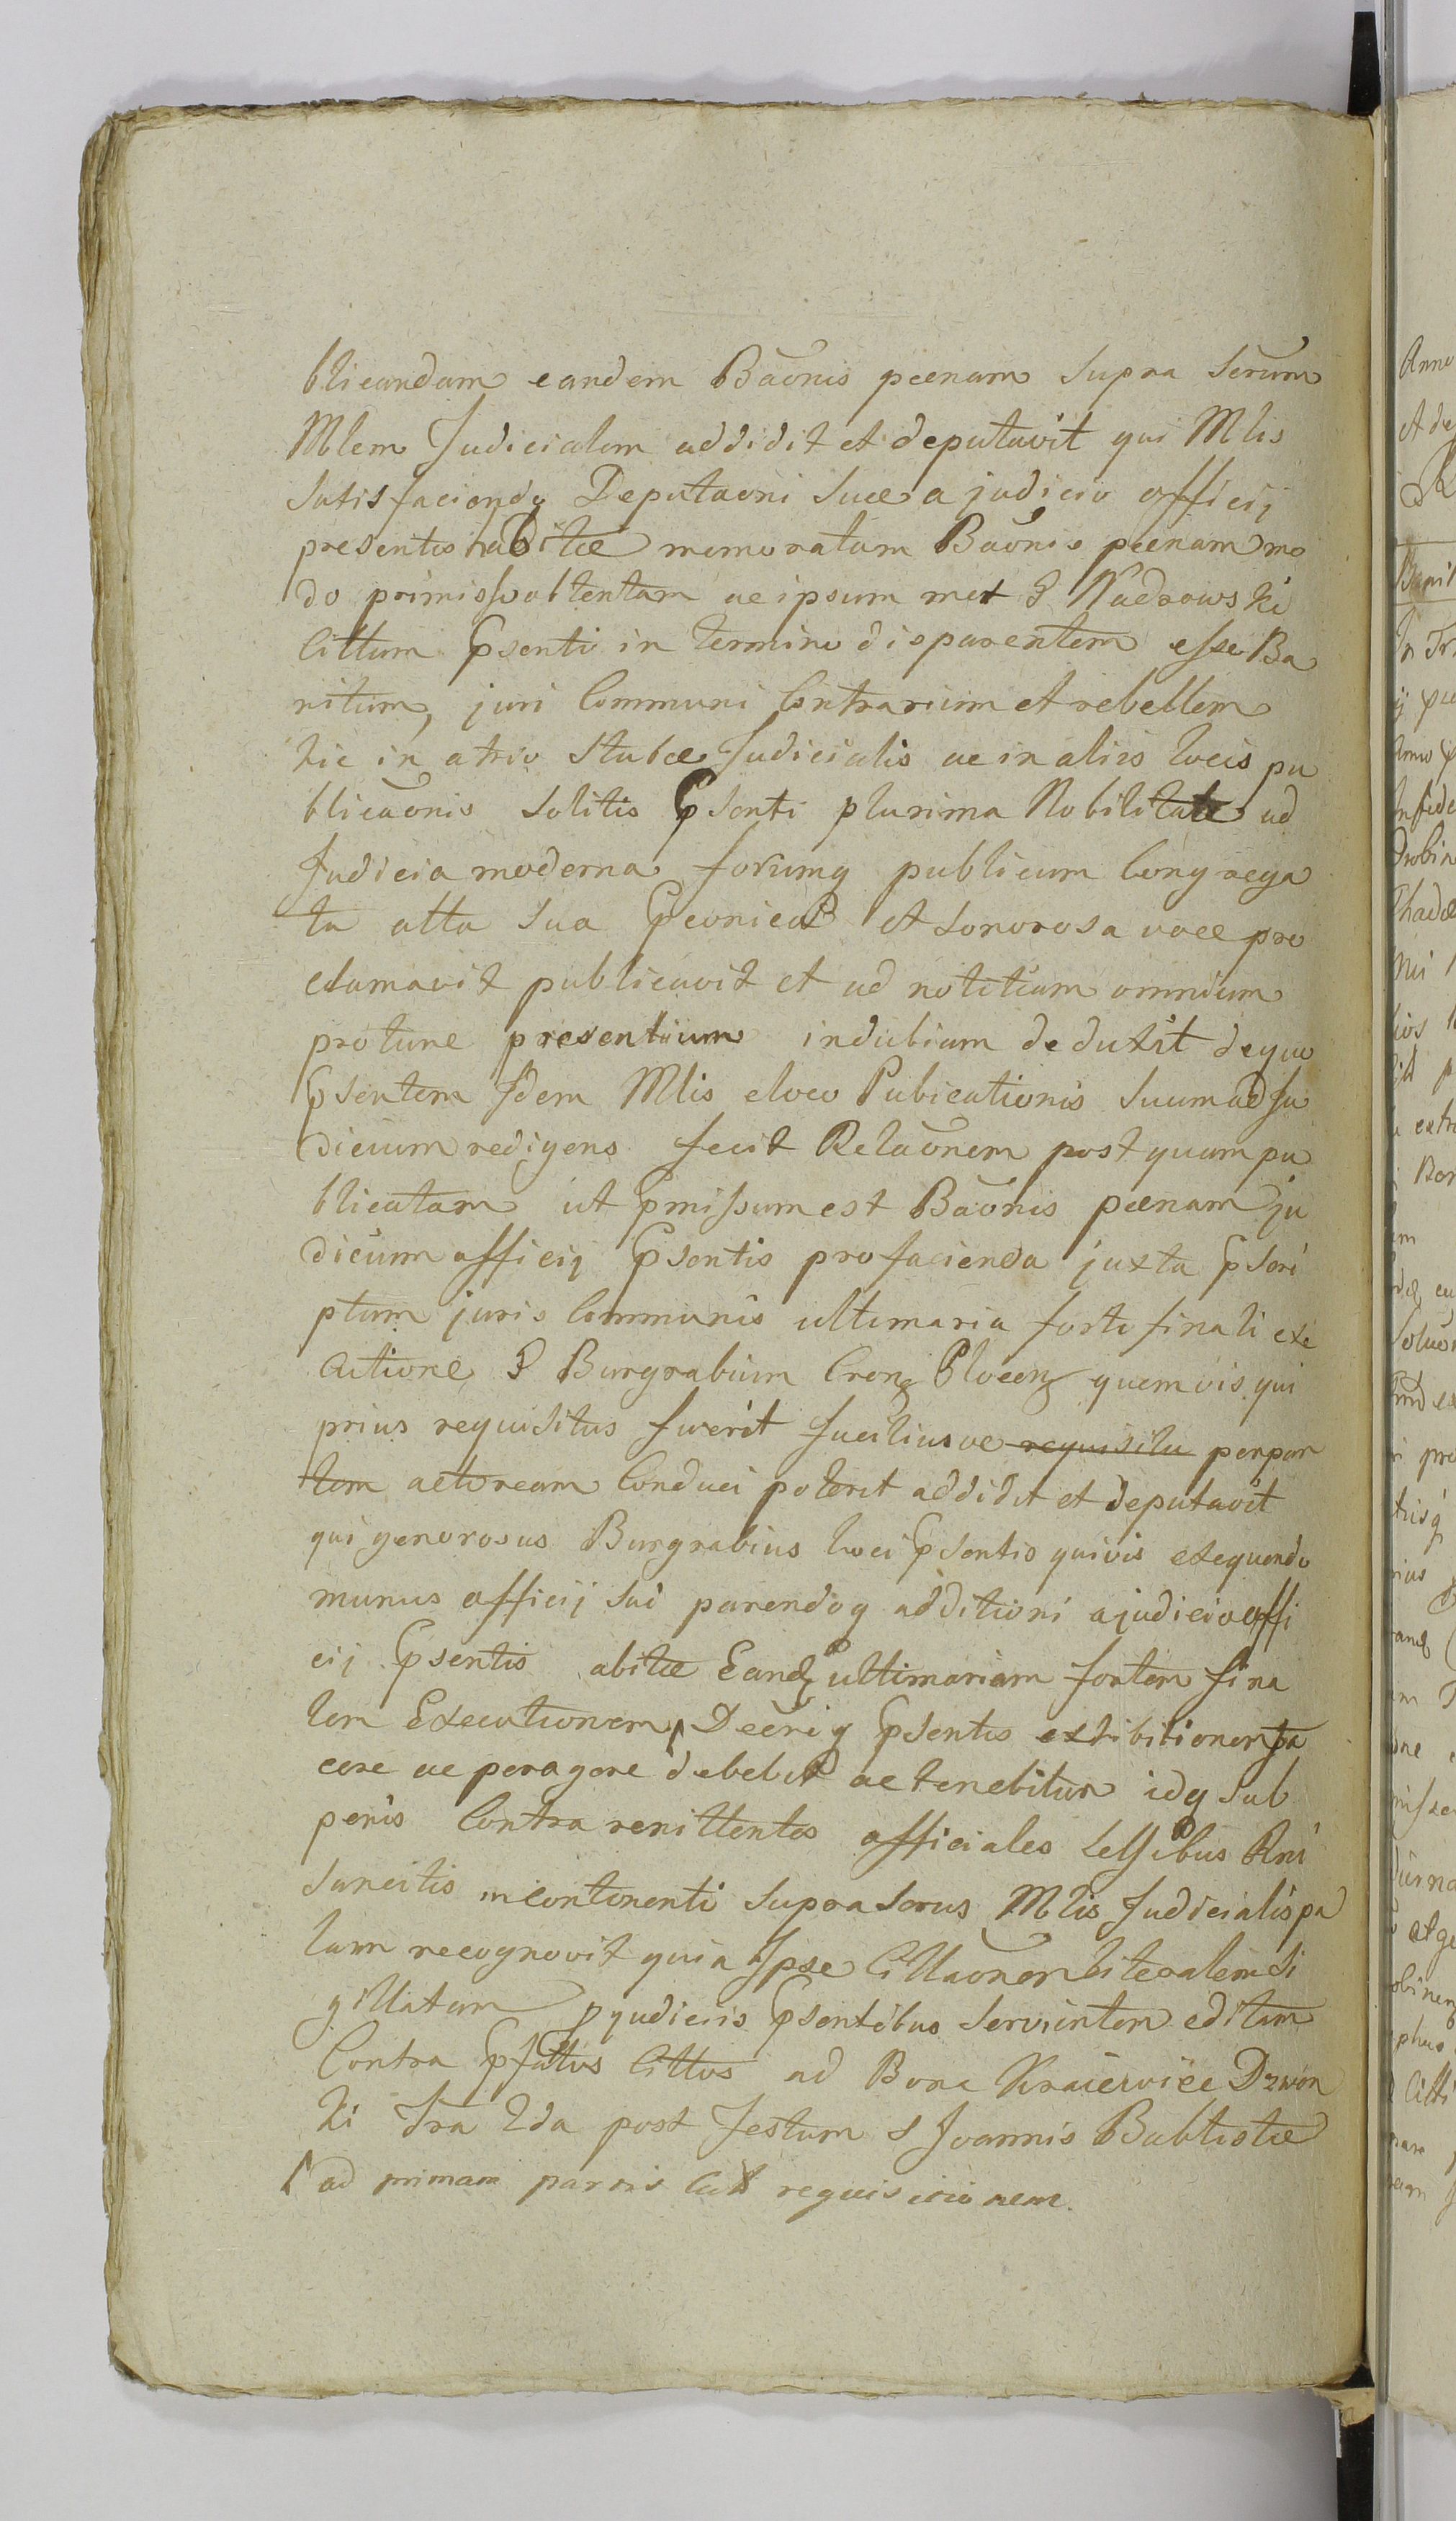 blicandam eandem Baonis pœnam supra Scrum
Mlem Judicialem addidit et deputavit qui Mlis
Satisfaciendq Deputaoni Suæ a judicio officij
presentis habitæ memoratam Baonis pœnam mo
do primisso obtentam ac ipsum met G Nadrowski
Cittum Psenti in termino disparentem esse Ba
nitum, juri Communi Contrarium et rebellem
hic in atrio Stubæ Judicialis ac in aliis locis pu
blicaonis Solitis Psenti plurima Nobilitate ad
Judicia moderna forumq publicum Congrega
ta alta Sua Pconica et Sonorosa voce pro
clamavit publicavit et ad notitiam omnium
protunc presentium indubiam deduxit dequo
Psentem Idem Mlis eloco Pubicationis Suum ad Ju
dicium redigens fecit Relaonem postquam pu
blicatam ut Pmissum est Baonis pœnam ju
dicium officij Psentis pro facienda juxta Pscri
ptum juris Communis ultimaria forti finali exe
cutione G Burgrabium Crong Plocen quemvis qui
prius requisitus fuerit faciliusve requisitu perpar
tem actoream Conduci poterit addidit et deputavit
qui generosus Burgrabius loci Psentis quivis exequendo
munus officij sui parendoq additioni ajudicio offi
cij Psentis abitæ Eandq ultimariam fortem fina
lem Executionem Decriq Psentis exhibitionem fa
cere ac peragere debebit ac tenebitur idq sub
penis Contra renittentes officiales Legibus Rni
Sancitis incontinenti Suprascrus Mlis Judicialis pa
lam recognovit quia Ipse Cittaonem literalem Si
gillatam p judiciis Psentibus Servientem editam
Contra Pfatus Cittos ad Bona Kraiewice Dzwon
ki fra 2da post festum S Joannis Babtistæ
ad primam partis requisitionem.